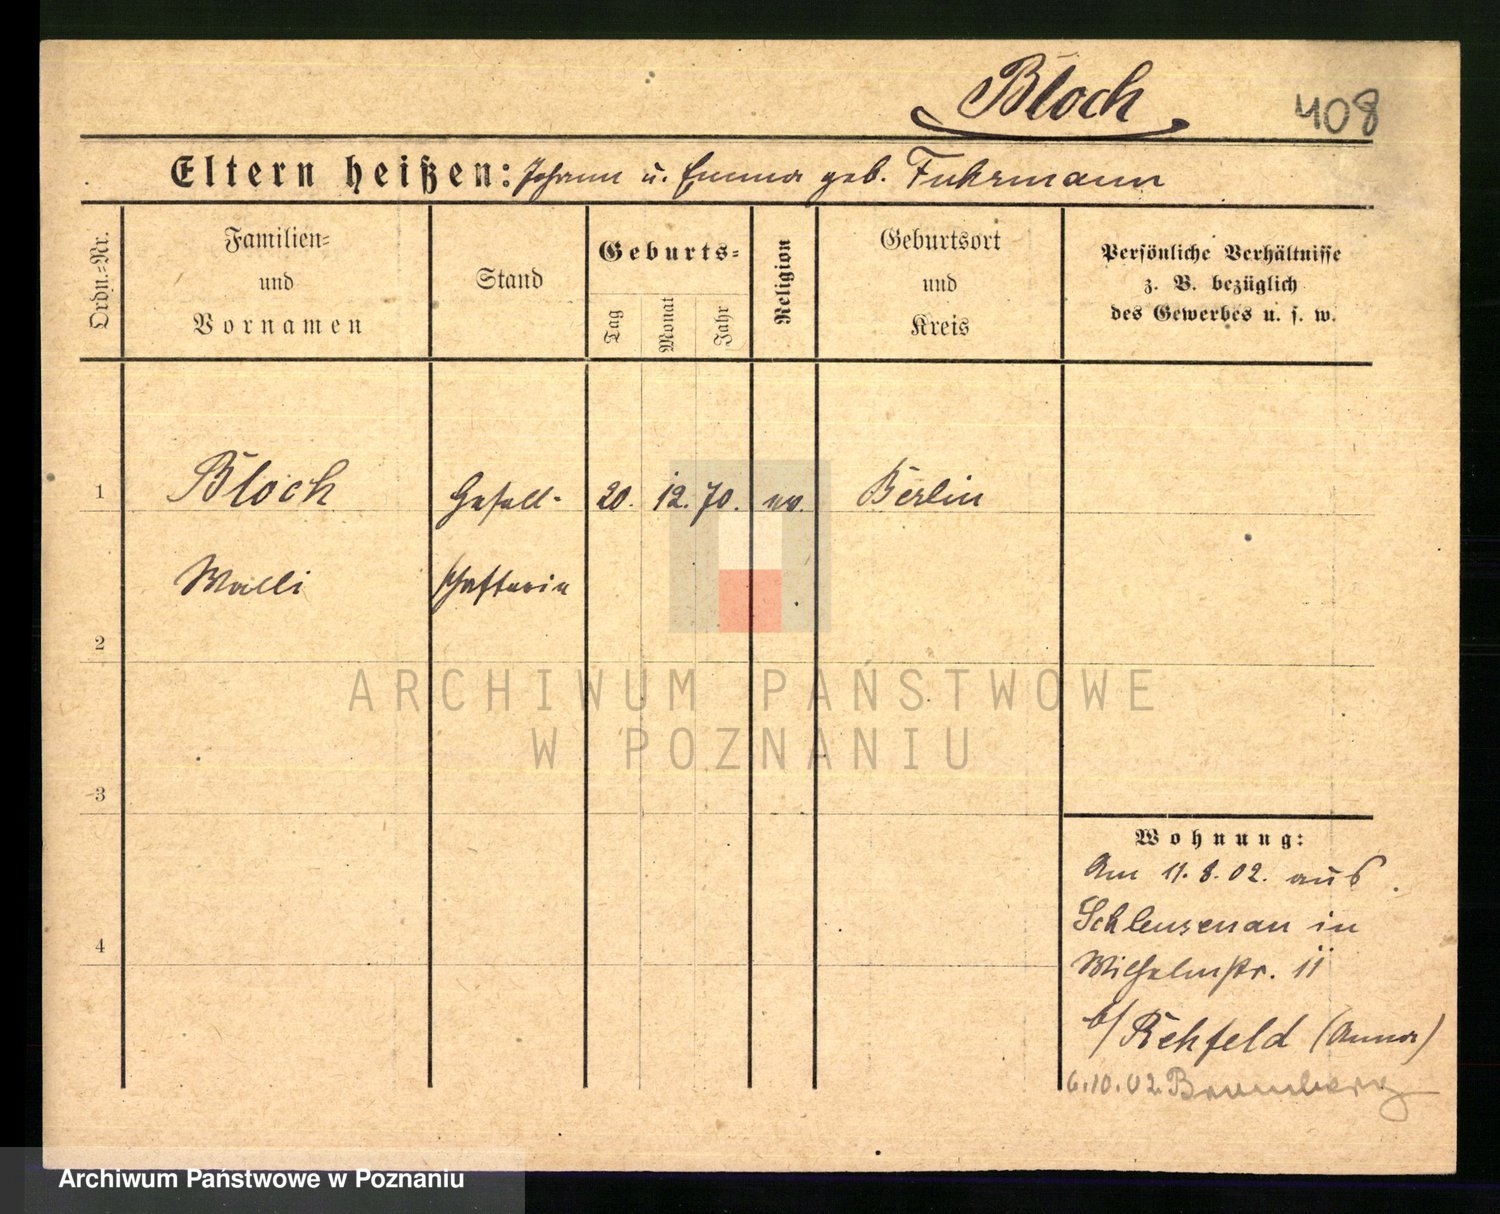 Bloch
408
Eltern heißen: Johann u. Emma geb. Fuhrmann
Ordn.-Nr.
Familien-
und
Vornamen
Stand
Geburts-
Tag
Monat
Jahr
Religion
Geburtsort
und
Kreis
Persönliche Verhältnisse
z. B. bezüglich
des Gewerbes u. s. w.
1 Bloch Gesell- 20. 12. 70. ev. Berlin
Walli schafterin
2
ARCHIWUM PAŃSTWOWE
W POZNANIU
3
Wohnung:
Am 11.8.02. aus
Schleusenau in
Wilhelmstr. 11
b/ Rehfeld (Anna)
6.10.02 Bromberg
4
Archiwum Państwowe w Poznaniu